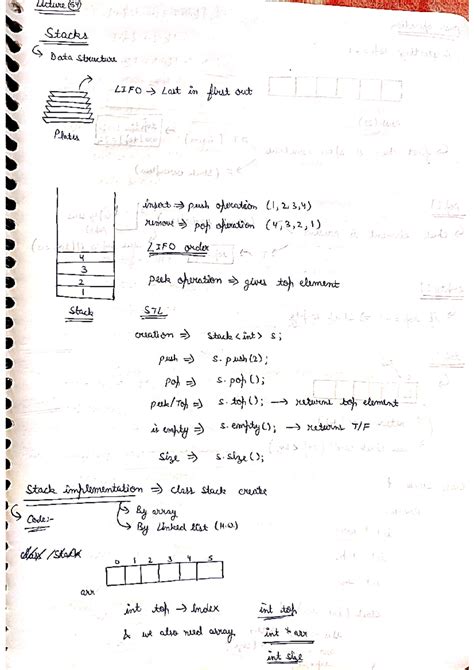 Lecture (54)
Stacks
Data Structure
LIFO → Last in first out
Plates
insert ⇒ push operation (1, 2, 3, 4)
remove ⇒ pop operation (4, 3, 2, 1)
LIFO order
4
3
2
1
peek operation ⇒ gives top element
Stack
STL
creation ⇒ Stack <int> s;
push ⇒ s.push(2);
pop ⇒ s.pop();
peek/Top ⇒ s.top(); → returns top element
is empty ⇒ s.empty(); → returns T/F
Size ⇒ s.size();
Stack implementation ⇒ class stack create
By array
Code:-
By Linked list (H.W)
0 1 2 3 4 5
arr
int top → Index
int top
& we also need array.
int * arr
int size